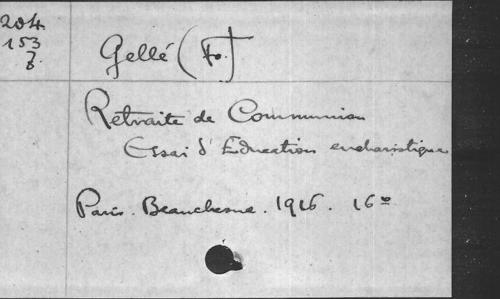 204
153
Gellé (Fr.]
Retraite de Communion
Essai d'Education eucharistique
Paris. Beauchesne. 1916. 16º